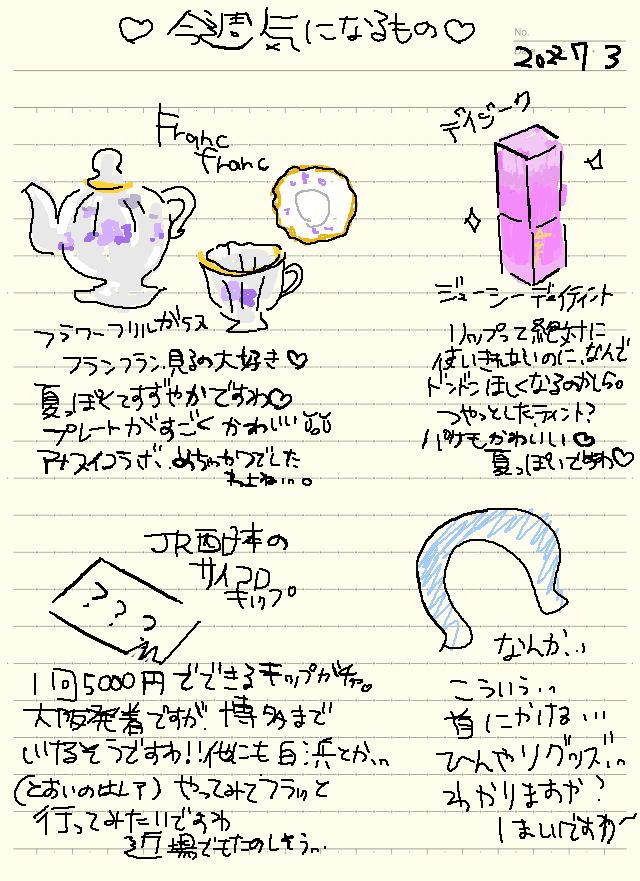 ♡ 今週気になるもの ♡
No.
2022 7 3
Franc
franc
デイジーク
フラワーフリルガラス
フランフラン見るの大好き♡
夏っぽくてすずやかですわ♡
プレートがすごくかわいい
アナスイコラボ、めちゃカワでした
わよね…。
ジューシーデュイティント
リップって絶対に
使いきれないのに、なんで
ドンドンほしくなるのかしら。
つやっとしたティント?
パケもかわいい♡
夏っぽいですわ♡
JR西日本の
サイコロ
キップ
???
1回5000円でできるキップがデ。
大阪発着ですが、博多まで
いけるそうですわ!!他にも白浜とか…
(とおいのはレア) やってみてフラッと
行ってみたいですわ
近場でもたのしそう…
なんか…
こういう…
首にかける…
ひんやりグッズ…
わかりますか?
ほしいですわ〜